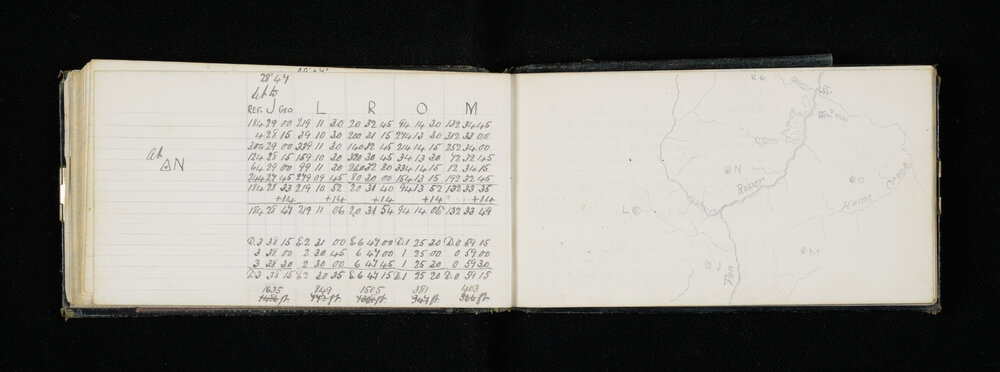 28° 47'
at △N
REF. J Geo L R O M
184 29 00 219 11 30 20 32 45 94 14 30 132 34 45
4 28 15 39 10 30 200 31 15 274 13 30 312 33 00
304 29 00 339 11 30 140 32 45 214 14 15 252 34 00
124 28 15 159 10 30 320 30 45 34 13 30 72 32 45
64 29 00 99 11 30 260 32 30 334 14 15 12 34 15
244 27 45 279 09 45 80 30 00 154 13 15 192 32 45
184 28 33 219 10 52 20 31 40 94 13 52 132 33 35
+14 +14 +14 +14 +14
184 28 47 219 11 06 20 31 54 94 14 06 132 33 49
D.3 38 15 E.2 31 00 E.6 47 00 D.1 25 30 D.0 59 15
3 38 00 2 30 45 6 47 00 1 25 00 0 59 00
3 38 30 2 30 00 6 47 45 1 25 30 0 59 30
D.3 38 15 E.2 30 35 E.6 47 15 D.1 25 20 D.0 59 15
1635 849 1505 381 403
R
N
River
L
O
Creek
Home
M
GJ